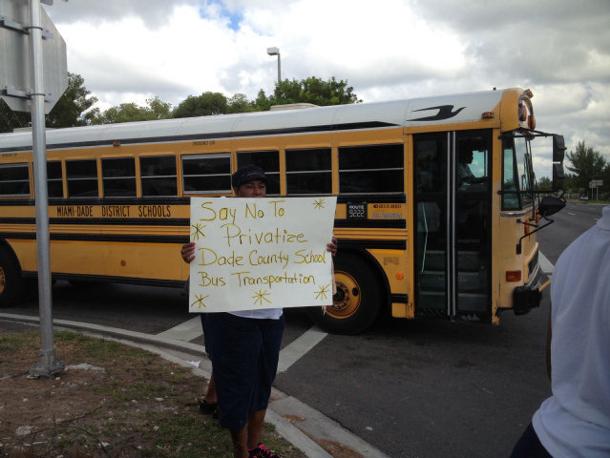 MIAMI-DADE DISTRICT SCHOOLS
Say No To
Privatize
Dade County School
Bus Transportation
ROUTE